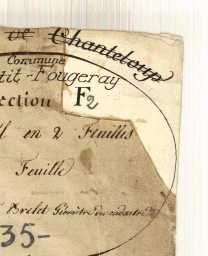 de Chanteloup
Commune
tit-Fougeray
ection F2
en 2 Feuilles
Feuille
Brelet Géomètre du cadastre
35-